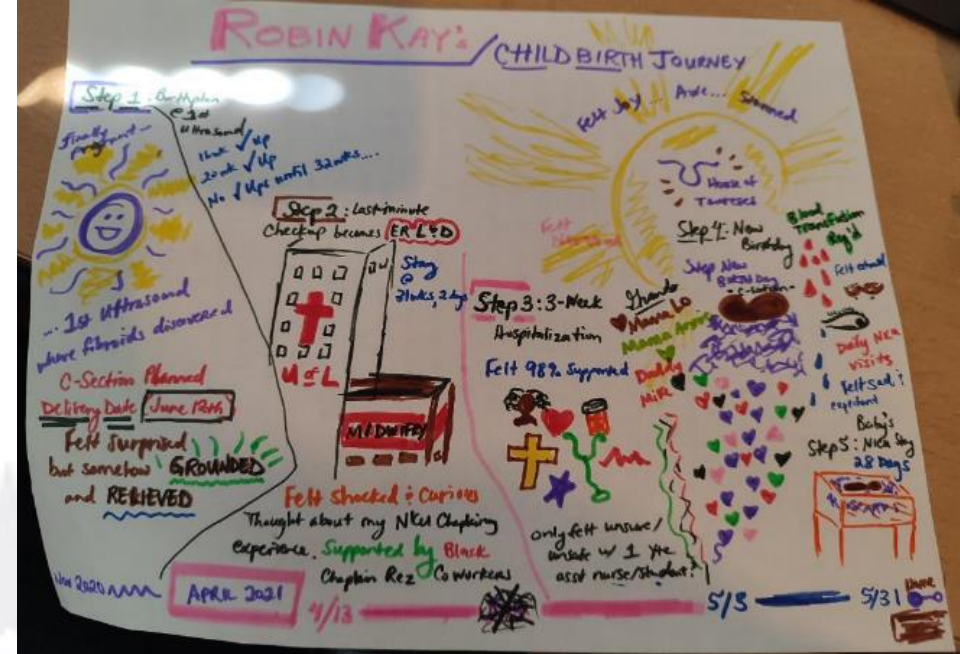 ROBIN KAY's / CHILDBIRTH JOURNEY
Step 1: Birthplan
@ 1st
Ultrasound
finally
pregnant...
16wk ✓up
20wk ✓up
No ✓ups until 32wks....
... 1st ultrasound
where fibroids discovered
C-Section Planned
Delivery Date June 12th
Felt Surprised
but somehow GROUNDED
and RELIEVED
Nov 2020
Step 2: Last-minute
Checkup becomes ER L&D
Stay
@
31wks, 2 days
U of L
MIDWIFERY
Felt Shocked & Curious
Thought about my
Chapking
experience. Supported by Black
Chaplain Rez CoWorkers
APRIL 2021
4/13
Step 3: 3-Week
Hospitalization
Felt 98% Supported
only felt unsure/
unsafe w/ 1 yte
asst nurse/student?
Felt Joy... Awe... Stunned
House of
Felt
Step 4: New
Birthday
Step New
Birth Day
Blood
Transfusion
Req'd
Grands
Mama Lo
Mama
Daddy
Mik
Felt
Daily NICU
Visits
Felt sad, &
expectant
Baby's
Step 5: NICU Stay
28 Days
5/3
5/31
Home